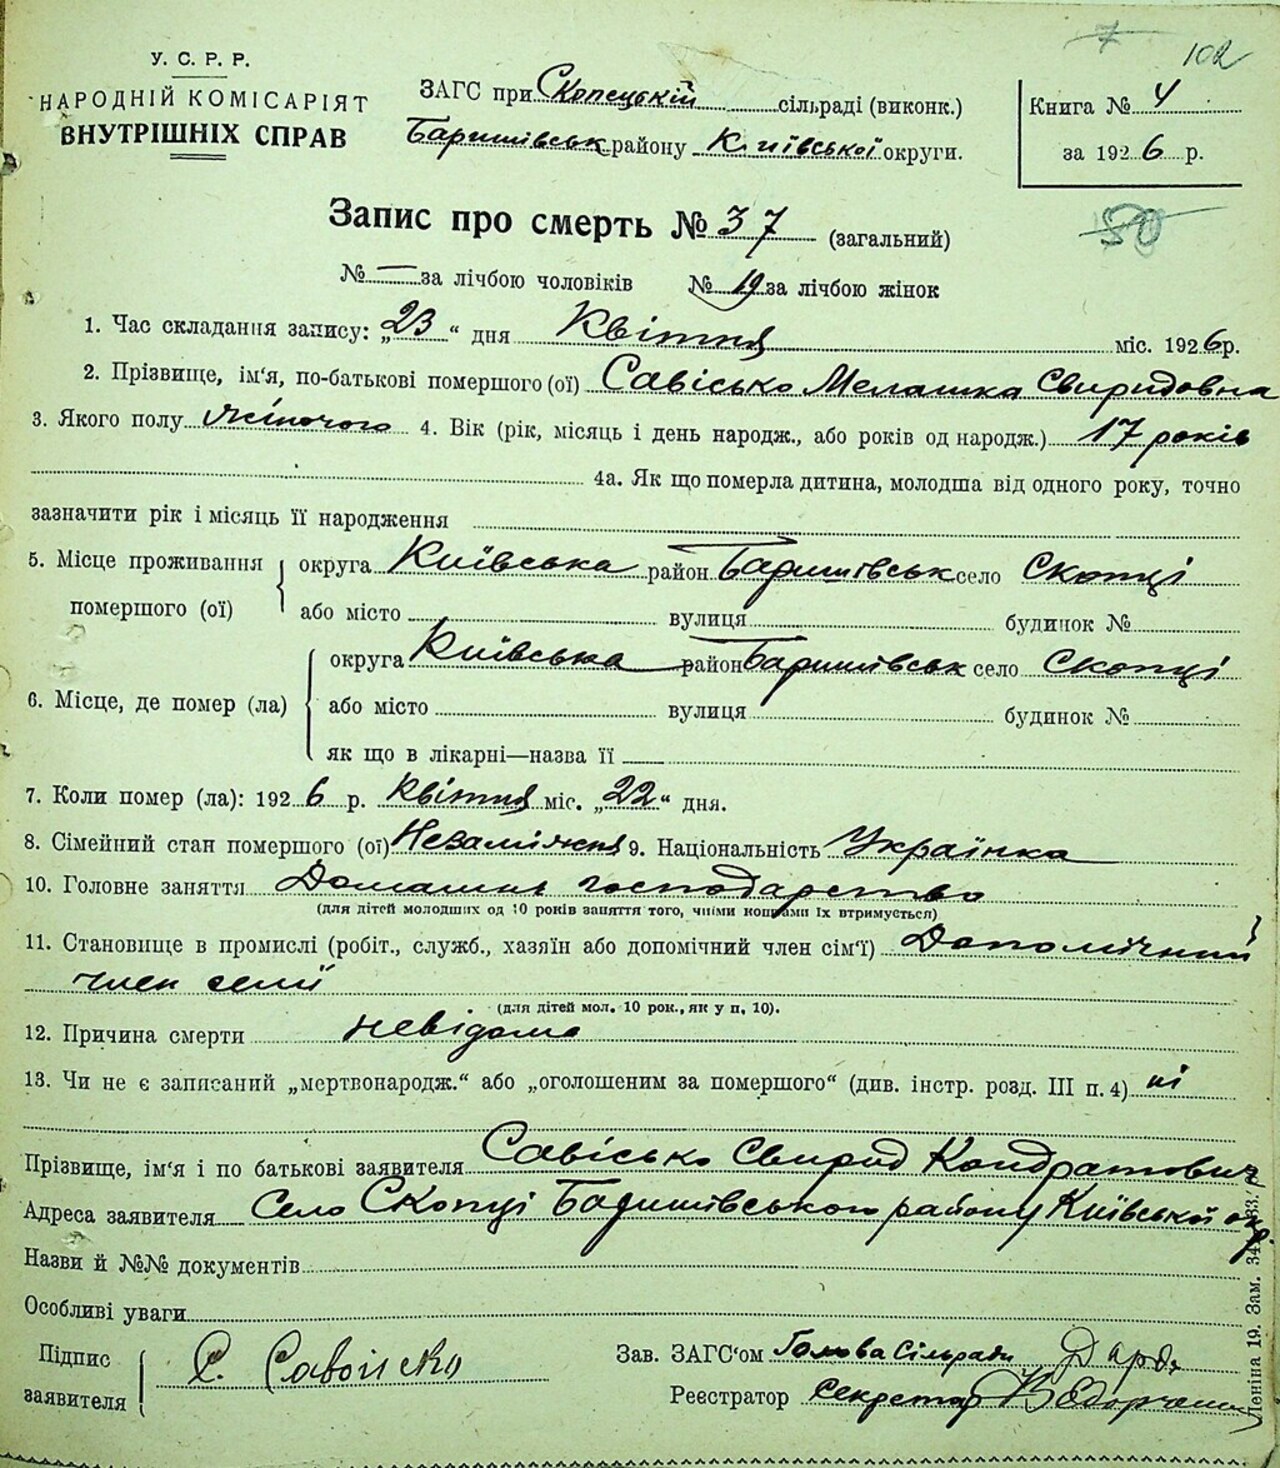 7
102
У. С. Р. Р.
НАРОДНІЙ КОМІСАРІЯТ
ВНУТРІШНІХ СПРАВ
ЗАГС при Скопецькій сільраді (виконк.)
Баришівськ району Київської округи.
Книга № 4
за 1926 р.
50
Запис про смерть № 37 (загальний)
№ — за лічбою чоловіків № 19 за лічбою жінок
1. Час складання запису: „23“ дня Квітня міс. 1926 р.
2. Прізвище, ім‘я, по-батькові помершого (ої) Савісько Мелашка Свиридовна
3. Якого полу жіночого 4. Вік (рік, місяць і день народж., або років од народж.) 17 років
4а. Як що померла дитина, молодша від одного року, точно
зазначити рік і місяць її народження
5. Місце проживання помершого (ої) округа Київська район Баришівськ село Скопці
або місто вулиця будинок №
6. Місце, де помер (ла) округа Київська район Баришівськ село Скопці
або місто вулиця будинок №
як що в лікарні—назва її
7. Коли помер (ла): 1926 р. Квітня міс. „22“ дня.
8. Сімейний стан помершого (ої) Незаміжня 9. Національність Українка
10. Головне заняття Домашнє господарство
(для дітей молодших од 10 років заняття того, чиїми коштами їх втримується)
11. Становище в промислі (робіт., служб., хазяїн або допомічний член сім‘ї) Допомічний
член семії
(для дітей мол. 10 рок., як у п. 10).
12. Причина смерти невідома
13. Чи не є записаний „мертвонародж.“ або „оголошеним за помершого“ (див. інстр. розд. III п. 4) ні
Прізвище, ім‘я і по батькові заявителя Савісько Свирид Кондратович
Адреса заявителя Село Скопці Баришівського району Київської окр.
Назви й №№ документів
Особливі уваги
Підпис заявителя С. Савоіско
Зав. ЗАГС‘ом Голова Сільради
Реєстратор Секретар
Леніна 19. Зам.